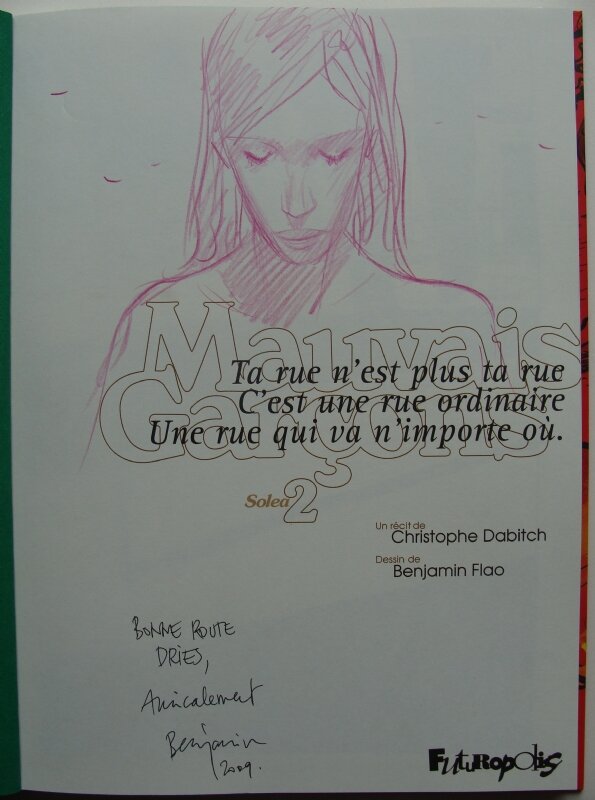 Mauvais
Ta rue n'est plus ta rue
C'est une rue ordinaire
Garçons
Une rue qui va n'importe où.
Solea 2
Un récit de
Christophe Dabitch
Dessin de
Benjamin Flao
BONNE ROUTE
DRIES,
Amicalement
Benjamin
2009.
FUTUROPOLIS